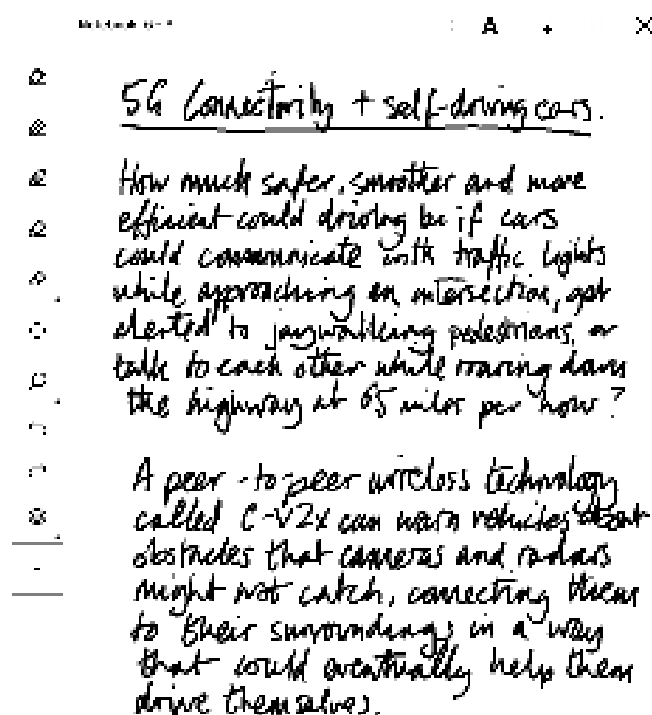 A
5G Connectivity + self-driving cars.
How much safer, smoother and more
efficient could driving be if cars
could communicate with traffic lights
while approaching an intersection, get
alerted to jaywalking pedestrians, or
talk to each other while roaring down
the highway at 65 miles per hour?
A peer-to-peer wireless technology
called C-V2X can warn vehicles about
obstacles that cameras and radars
might not catch, connecting them
to their surroundings in a way
that could eventually help them
drive themselves.